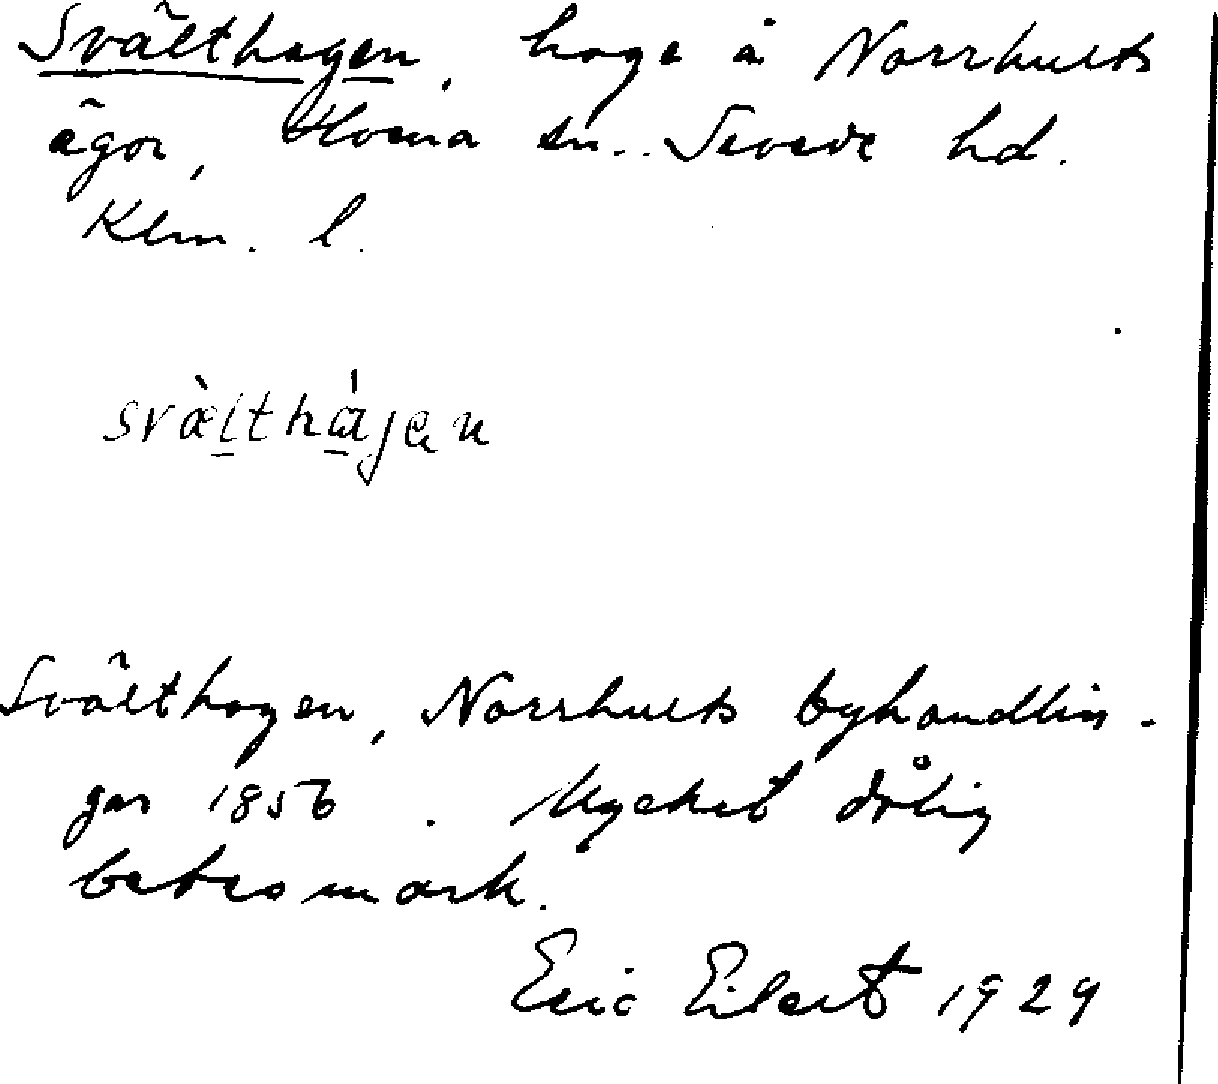 Svälthagen, hage å Norrhults
ägor, Tuna sn. Sevede hd.
Klm. l.
svæ̀lthájen
Svälthagen, Norrhults byhandlin-
gar 1856. Mycket dålig
betesmark.
Eric Eilert 1929